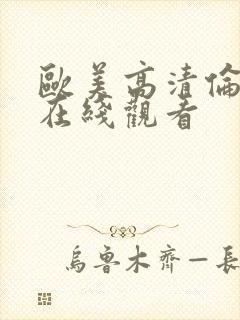 歐美高清倫
在綫觀看
烏魯木齊—長